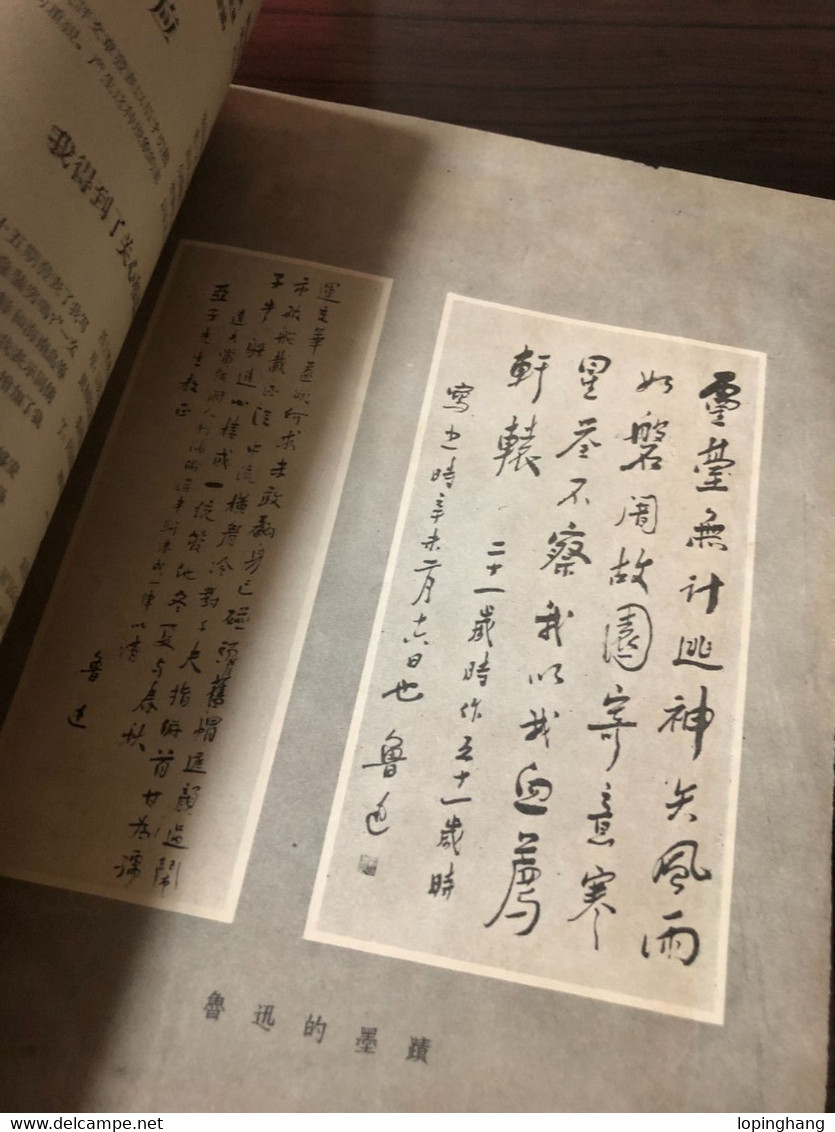 应
我得到了
靈臺無計逃神矢風雨
如磐闇故園寄意寒
星荃不察我以我血薦
軒轅
二十一歲時作五十一歲時
寫之時辛未二月十六日也 魯迅
運交華蓋欲何求未敢翻身已碰頭舊帽遮顏過鬧
市破船載酒泛中流橫眉冷對千夫指俯首甘為孺
子牛躲進小樓成一統管他冬夏與春秋
達夫賞飯閒人打油偷得半聯湊成一律以請
亞子先生教正
魯迅
魯迅的墨蹟
www.delcampe.net
lopinghang